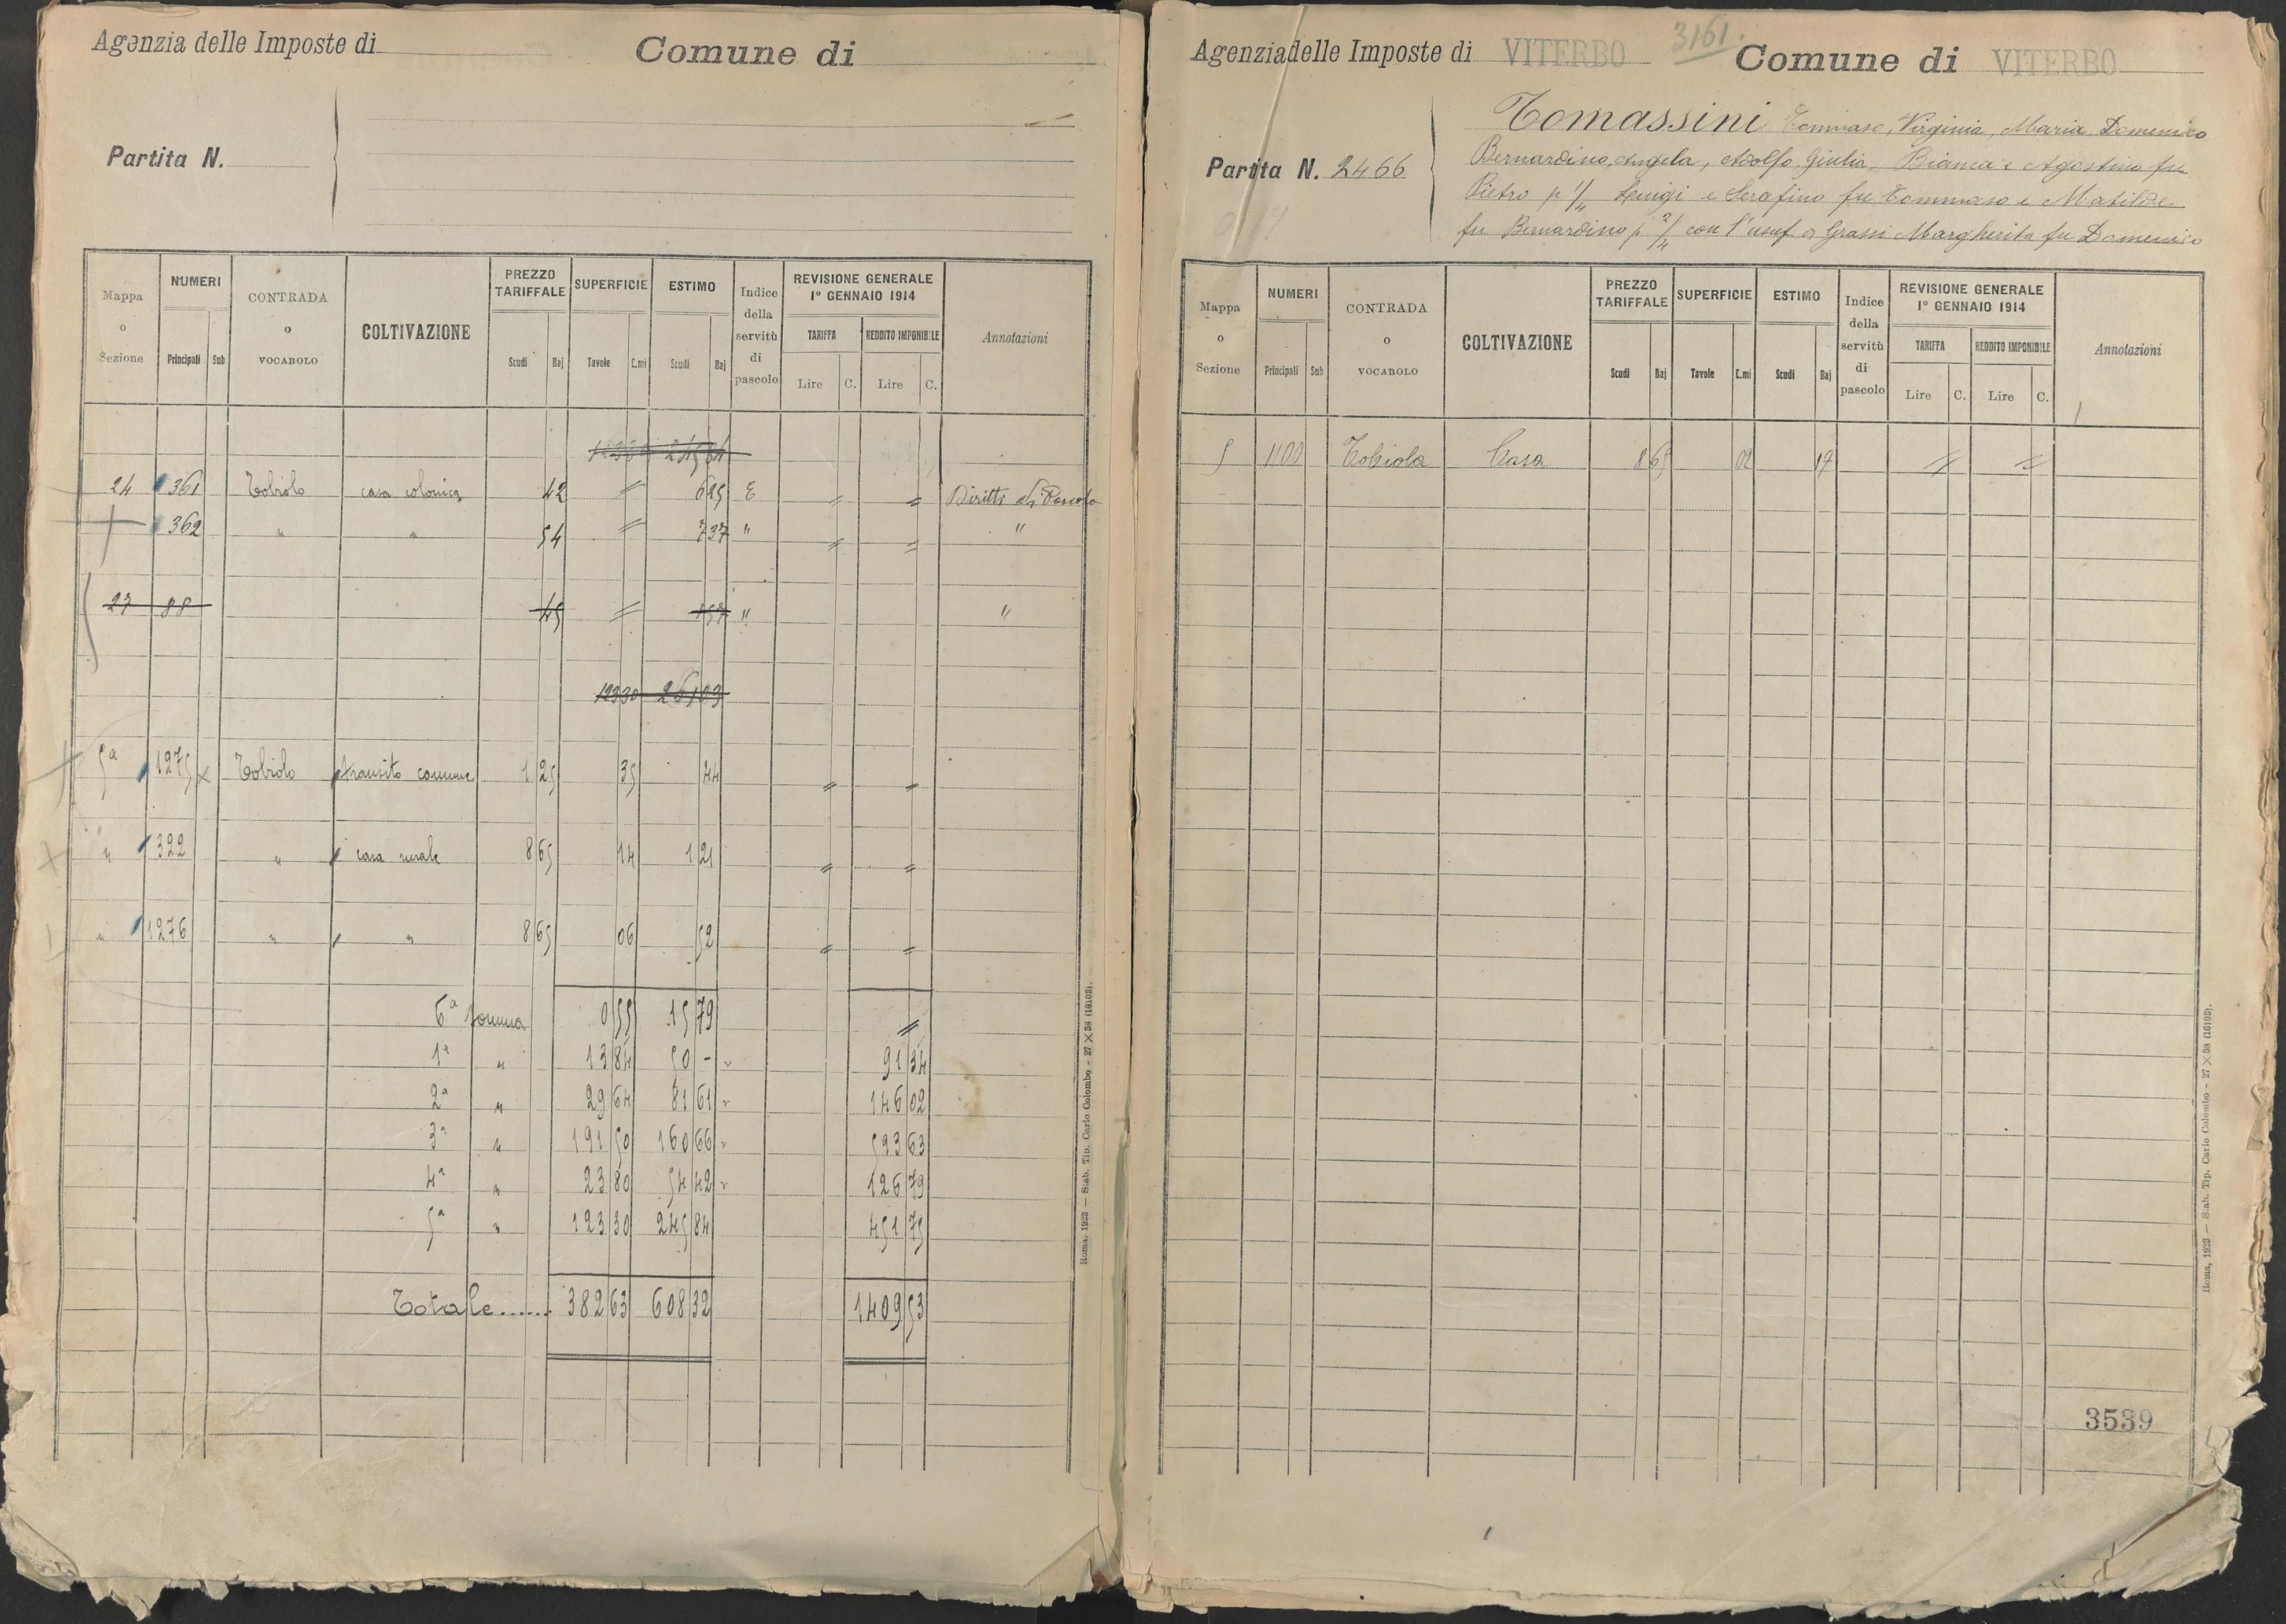 Agenzia delle Imposte di
Comune di
Partita N.
Mappa o Sezione
NUMERI
Principali Sub
CONTRADA o VOCABOLO
COLTIVAZIONE
PREZZO TARIFFALE
Scudi Baj
SUPERFICIE
Tavole C.mi
ESTIMO
Scudi Baj
Indice della servitù di pascolo
REVISIONE GENERALE
1º GENNAIO 1914
TARIFFA
Lire C.
REDDITO IMPONIBILE
Lire C.
Annotazioni
245 84
24 361 Tobiolo casa colonica 42 〃 6 25 E 〃 〃 Diritti di Pascolo
362 " " 54 〃 7 37 " 〃 〃 "
27 88 45 〃 1 57 " "
123 30 261 03
5ª 1275 x Tobiolo transito comune 1 25 35 44 〃 〃
" 322 " casa rurale 8 65 14 1 21 〃 〃
" 1276 " " 8 65 06 52 〃 〃
6ª Somma 0 55 15 79 〃
1ª " 13 84 50 - 91 34
2ª " 29 64 81 61 146 02
3ª " 191 50 160 66 593 63
4ª " 23 80 54 42 126 79
5ª " 123 30 245 84 451 75
Totale...... 382 63 608 32 1409 53
Roma, 1923 — Stab. Tip. Carlo Colombo - 27 × 38 (16103).
Agenzia delle Imposte di VITERBO
3161.
Comune di VITERBO
Partita N. 2466
Tomassini Tommaso, Virginia, Maria, Domenico
Bernardino, Angela, Adolfo, Giulia, Bianca e Agostino fu
Pietro p 1/4 Luigi e Serafino fu Tommaso e Matilde
fu Bernardino p 3/4 con l'usuf. a Grassi Margherita fu Domenico
Mappa o Sezione
NUMERI
Principali Sub
CONTRADA o VOCABOLO
COLTIVAZIONE
PREZZO TARIFFALE
Scudi Baj
SUPERFICIE
Tavole C.mi
ESTIMO
Scudi Baj
Indice della servitù di pascolo
REVISIONE GENERALE
1º GENNAIO 1914
TARIFFA
Lire C.
REDDITO IMPONIBILE
Lire C.
Annotazioni
5 1100 Tobiola Casa 8 65 02 17 〃 〃
3539
Roma, 1923 — Stab. Tip. Carlo Colombo - 27 × 38 (16103).